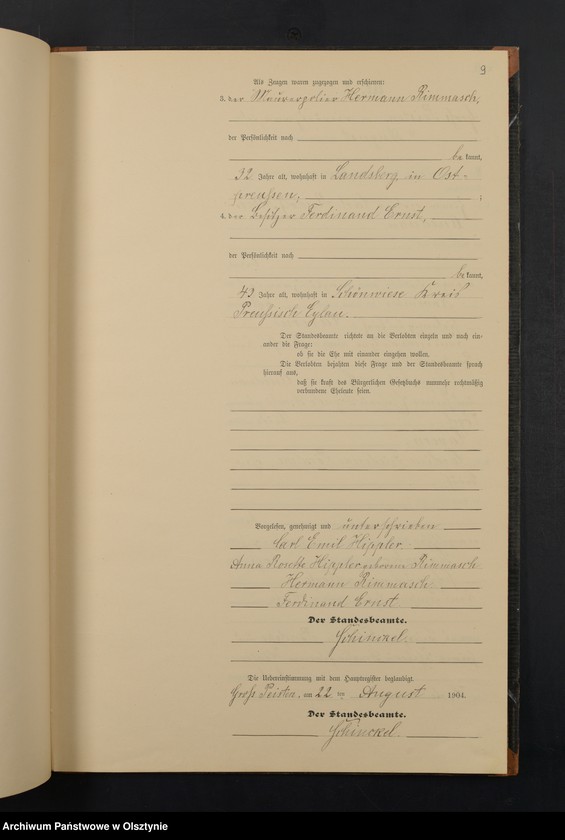 9
Als Zeugen waren zugezogen und erschienen:
3. der Maurerpolier Hermann Rimmasch,
der Persönlichkeit nach
be kannt,
32 Jahre alt, wohnhaft in Landsberg in Ost-
preußen,
4. der Besitzer Ferdinand Ernst,
der Persönlichkeit nach
be kannt,
49 Jahre alt, wohnhaft in Schönwiese Kreis
Preußisch Eylau.
Der Standesbeamte richtete an die Verlobten einzeln und nach ein-
ander die Frage:
ob sie die Ehe mit einander eingehen wollen.
Die Verlobten bejahten diese Frage und der Standesbeamte sprach
hierauf aus,
daß sie kraft des Bürgerlichen Gesetzbuchs nunmehr rechtmäßig
verbundene Eheleute seien.
Vorgelesen, genehmigt und unterschrieben
Carl Emil Hippler
Anna Rosette Hippler geborene Rimmasch
Hermann Rimmasch
Ferdinand Ernst
Der Standesbeamte.
Schinckel.
Die Uebereinstimmung mit dem Hauptregister beglaubigt.
Groß Peisten, am 22 ten August 1904.
Der Standesbeamte.
Schinckel.
Archiwum Państwowe w Olsztynie